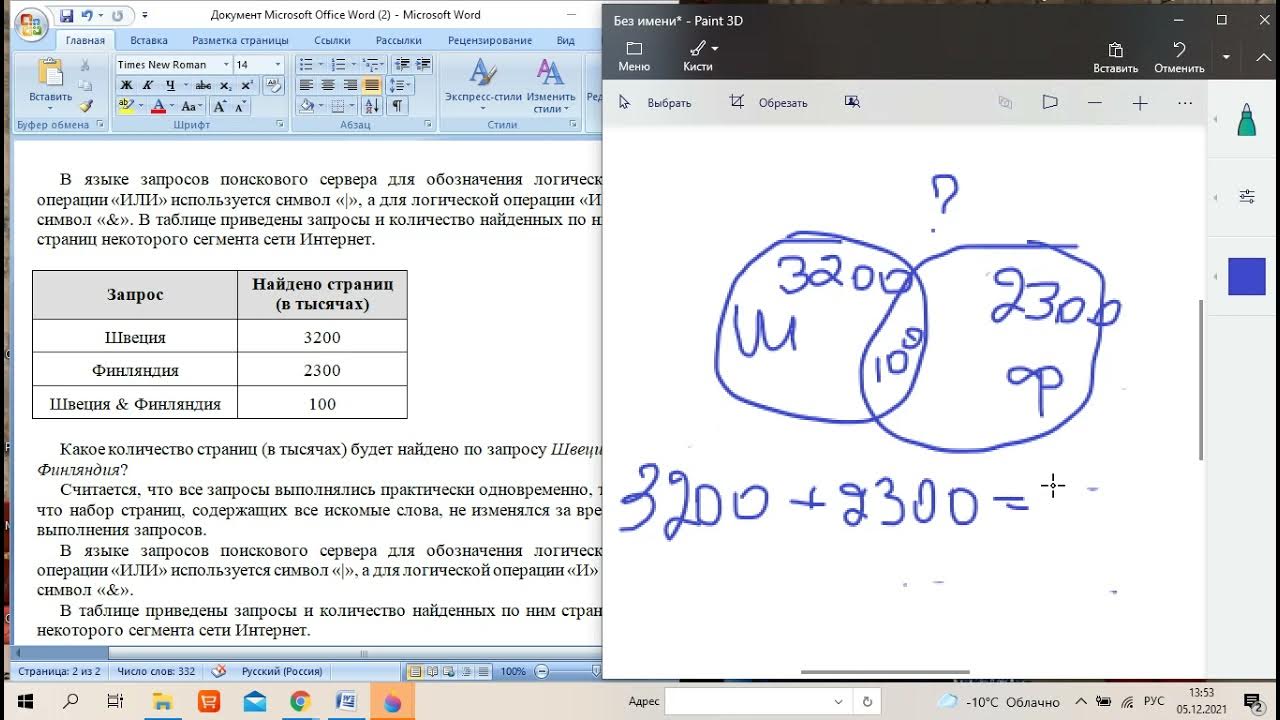 Документ Microsoft Office Word (2) - Microsoft Word
Главная Вставка Разметка страницы Ссылки Рассылки Рецензирование Вид
Times New Roman 14
Вставить
Ж К Ч abc x₂ x²
ab А Aa A A
Экспресс-стили Изменить стили
Ред
Буфер обмена Шрифт Абзац Стили
В языке запросов поискового сервера для обозначения логическ
операции «ИЛИ» используется символ «|», а для логической операции «И
символ «&». В таблице приведены запросы и количество найденных по ни
страниц некоторого сегмента сети Интернет.
Запрос Найдено страниц (в тысячах)
Швеция 3200
Финляндия 2300
Швеция & Финляндия 100
Какое количество страниц (в тысячах) будет найдено по запросу Швеци
Финляндия?
Считается, что все запросы выполнялись практически одновременно, т
что набор страниц, содержащих все искомые слова, не изменялся за вре
выполнения запросов.
В языке запросов поискового сервера для обозначения логическ
операции «ИЛИ» используется символ «|», а для логической операции «И»
символ «&».
В таблице приведены запросы и количество найденных по ним стран
некоторого сегмента сети Интернет.
Страница: 2 из 2 Число слов: 332 Русский (Россия) 100%
Без имени* - Paint 3D
Меню Кисти Вставить Отменить
Выбрать Обрезать
?
3200 2300
Ш 100 Ф
3200 + 2300 =
Адрес -10°C Облачно РУС 13:53
05.12.2021 2